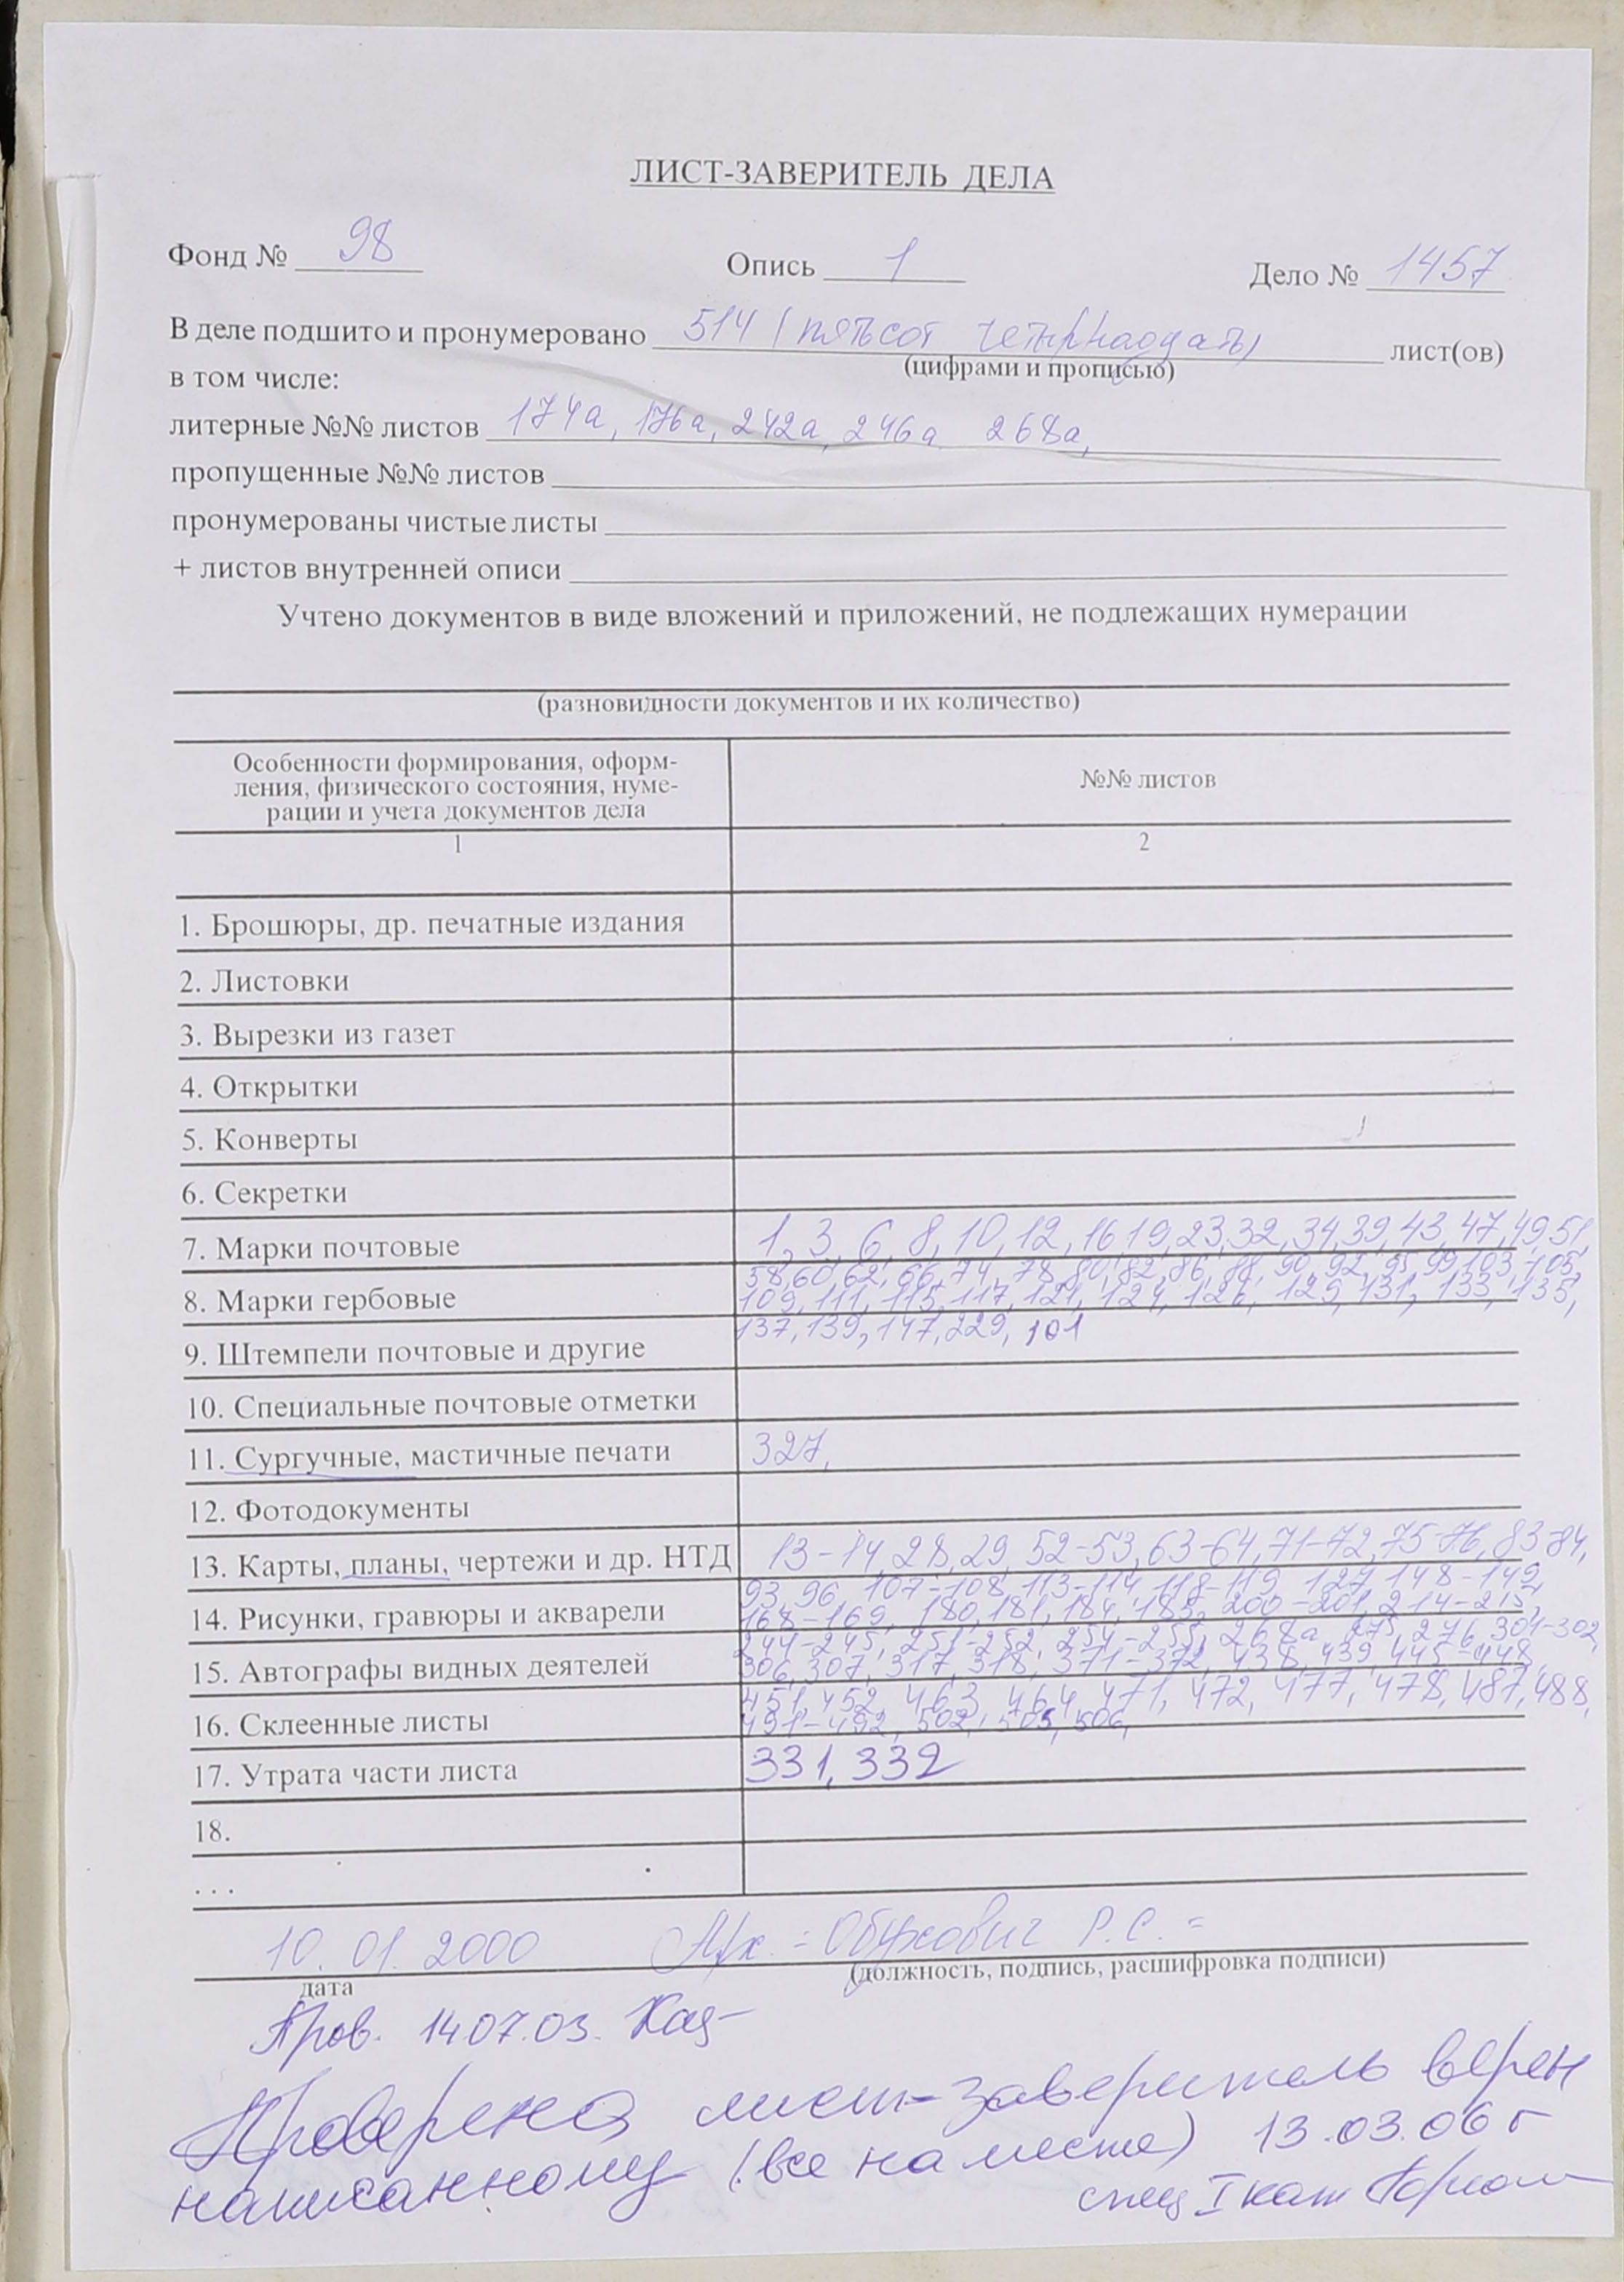 ЛИСТ-ЗАВЕРИТЕЛЬ ДЕЛА
Фонд № 98 Опись 1 Дело № 1457
В деле подшито и пронумеровано 514 (пятьсот четырнадцать) лист(ов)
(цифрами и прописью)
в том числе:
литерные №№ листов 174а, 176а, 242а, 246а 268а,
пропущенные №№ листов
пронумерованы чистые листы
+ листов внутренней описи
Учтено документов в виде вложений и приложений, не подлежащих нумерации
(разновидности документов и их количество)
Особенности формирования, оформ-
ления, физического состояния, нуме-
рации и учета документов дела
№№ листов
1 2
1. Брошюры, др. печатные издания
2. Листовки
3. Вырезки из газет
4. Открытки
5. Конверты
6. Секретки
7. Марки почтовые 1, 3, 6, 8, 10, 12, 16, 19, 23, 32, 34, 39, 43, 47, 49, 51,
58, 60, 62, 66, 74, 78, 80, 82, 86, 88, 90, 92, 95, 99, 103, 105,
8. Марки гербовые 109, 111, 115, 117, 121, 124, 126, 129, 131, 133, 135,
137, 139, 147, 229, 101
9. Штемпели почтовые и другие
10. Специальные почтовые отметки
11. Сургучные, мастичные печати 327,
12. Фотодокументы
13. Карты, планы, чертежи и др. НТД 13-14, 28, 29, 52-53, 63-64, 71-72, 75-76, 83-84,
93, 96, 107-108, 113-114, 118-119, 127, 148-149,
14. Рисунки, гравюры и акварели 168-169, 180, 181, 184, 185, 200-201, 214-215,
244-245, 251-252, 254-255, 268а, 275, 276, 301-302,
15. Автографы видных деятелей 306, 307, 317, 318, 371-372, 438, 439, 445-448,
451, 452, 463, 464, 471, 472, 477, 478, 487, 488,
16. Склеенные листы 491-492, 502, 505, 506,
17. Утрата части листа 331, 332
18.
...
10.01.2000 Арх. = Обухович Р.С. =
дата (должность, подпись, расшифровка подписи)
Пров. 14.07.03.
Проверено лист-заверитель верен
написанному (все на месте) 13.03.06 г
спец I кат